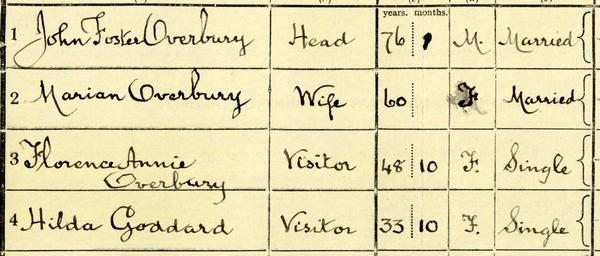 years. months.
1 John Foster Overbury Head 76 1 M. Married
2 Marian Overbury Wife 60 F. Married
3 Florence Annie Visitor 48 10 F. Single
Overbury
4 Hilda Goddard Visitor 33 10 F. Single